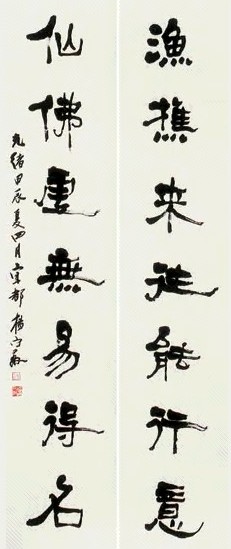 漁樵来往能行意
仙佛虛無易得名
光緒甲辰夏四月宜都楊守敬